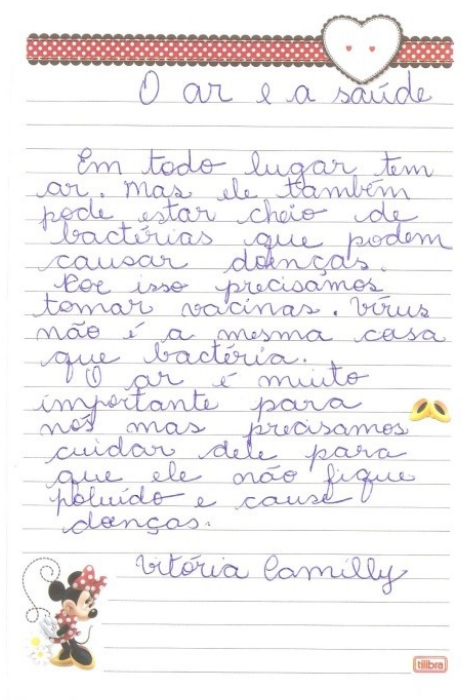 O ar e a saúde
Em todo lugar tem
ar. Mas ele também
pode estar cheio de
bactérias que podem
causar doenças.
Por isso precisamos
tomar vacinas. Vírus
não é a mesma coisa
que bactéria.
O ar é muito
importante para
nós mas precisamos
cuidar dele para
que ele não fique
poluído e cause
doenças.
Vitória Camilly
tilibra